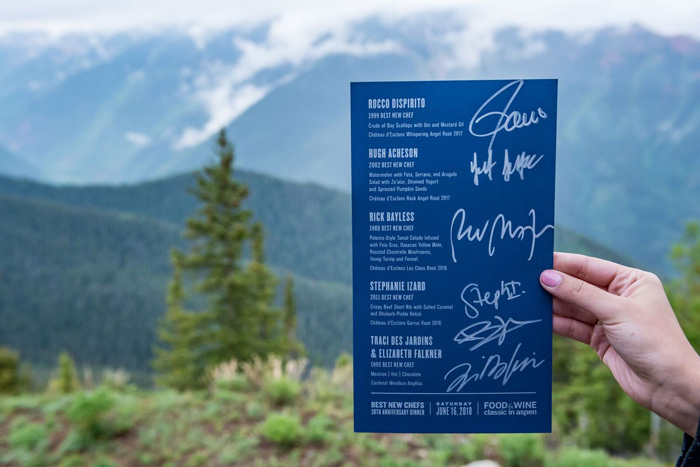 ROCCO DISPIRITO
1999 BEST NEW CHEF
Crudo of Bay Scallops with Uni and Mustard Oil
Château d'Esclans Whispering Angel Rosé 2017
HUGH ACHESON
2002 BEST NEW CHEF
Watermelon with Feta, Serrano, and Arugula
Salad with Za'atar, Strained Yogurt
and Sprouted Pumpkin Seeds
Château d'Esclans Rock Angel Rosé 2017
RICK BAYLESS
1988 BEST NEW CHEF
Polenta-Style Tamal Colado Infused
with Foie Gras, Oaxacan Yellow Mole,
Roasted Chantrelle Mushrooms,
Young Turnip and Fennel
Château d'Esclans Les Clans Rosé 2016
STEPHANIE IZARD
2011 BEST NEW CHEF
Crispy Beef Short Rib with Salted Caramel
and Rhubarb-Pickle Relish
Château d'Esclans Garrus Rosé 2016
TRACI DES JARDINS
& ELIZABETH FALKNER
1995 BEST NEW CHEF
Mexican | Hot | Chocolate
Cardenal Mendoza Angêlus
BEST NEW CHEFS
30TH ANNIVERSARY DINNER
SATURDAY
JUNE 16, 2018
FOOD&WINE
classic in aspen